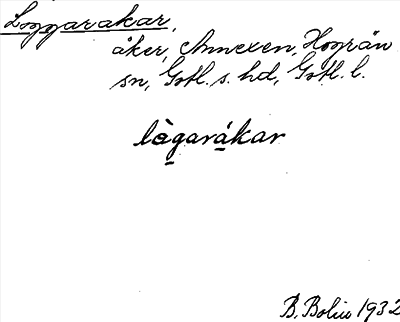 Loggarakar,
åker, Annexen, Hogrän
sn, Gotl. s. hd, Gotl. l.
lògarákar
B. Bolin 1932